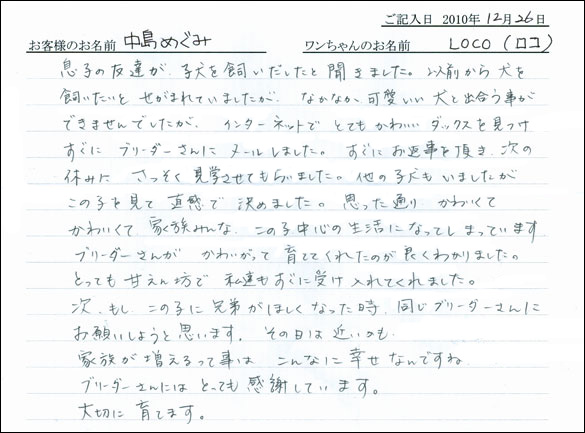 ご記入日 2010年12月26日
お客様のお名前 中島めぐみ ワンちゃんのお名前 LOCO(ロコ)
息子の友達が、子犬を飼いだしたと聞きました。以前から犬を
飼いたいと せがまれていましたが、なかなか可愛いい犬と出合う事が
できませんでしたが、インターネットで とてもかわいい ダックスを見つけ
すぐに ブリーダーさんに メールしました。 すぐにお返事を頂き、次の
休みに さっそく見学させてもらいました。他の子犬もいましたが
この子を見て 直感で 決めました。思った通り かわいくて
かわいくて、家族みんな、この子中心の生活になってしまっています
ブリーダーさんが かわいがって 育ててくれたのが良くわかりました。
とっても甘えん坊で 私達もすぐに受け入れてくれました。
次、もし、この子に兄弟がほしくなった時、同じブリーダーさんに
お願いしようと思います。 その日は近いかも
家族が増えるって事は こんなに幸せなんですね
ブリーダーさんには とっても感謝しています。
大切に育てます。